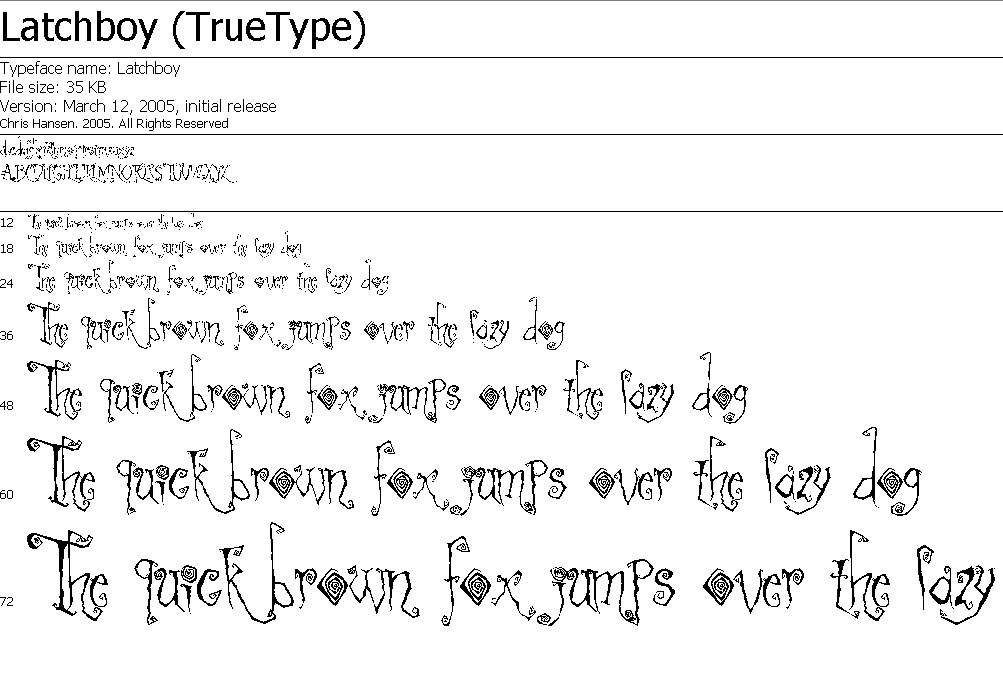 Latchboy (TrueType)
Typeface name: Latchboy
File size: 35 KB
Version: March 12, 2005, initial release
Chris Hansen. 2005. All Rights Reserved
12 The quick brown fox jumps over the lazy dog
18 The quick brown fox jumps over the lazy dog
24 The quick brown fox jumps over the lazy dog
36 The quick brown fox jumps over the lazy dog
48 The quick brown fox jumps over the lazy dog
60 The quick brown fox jumps over the lazy dog
72 The quick brown fox jumps over the lazy